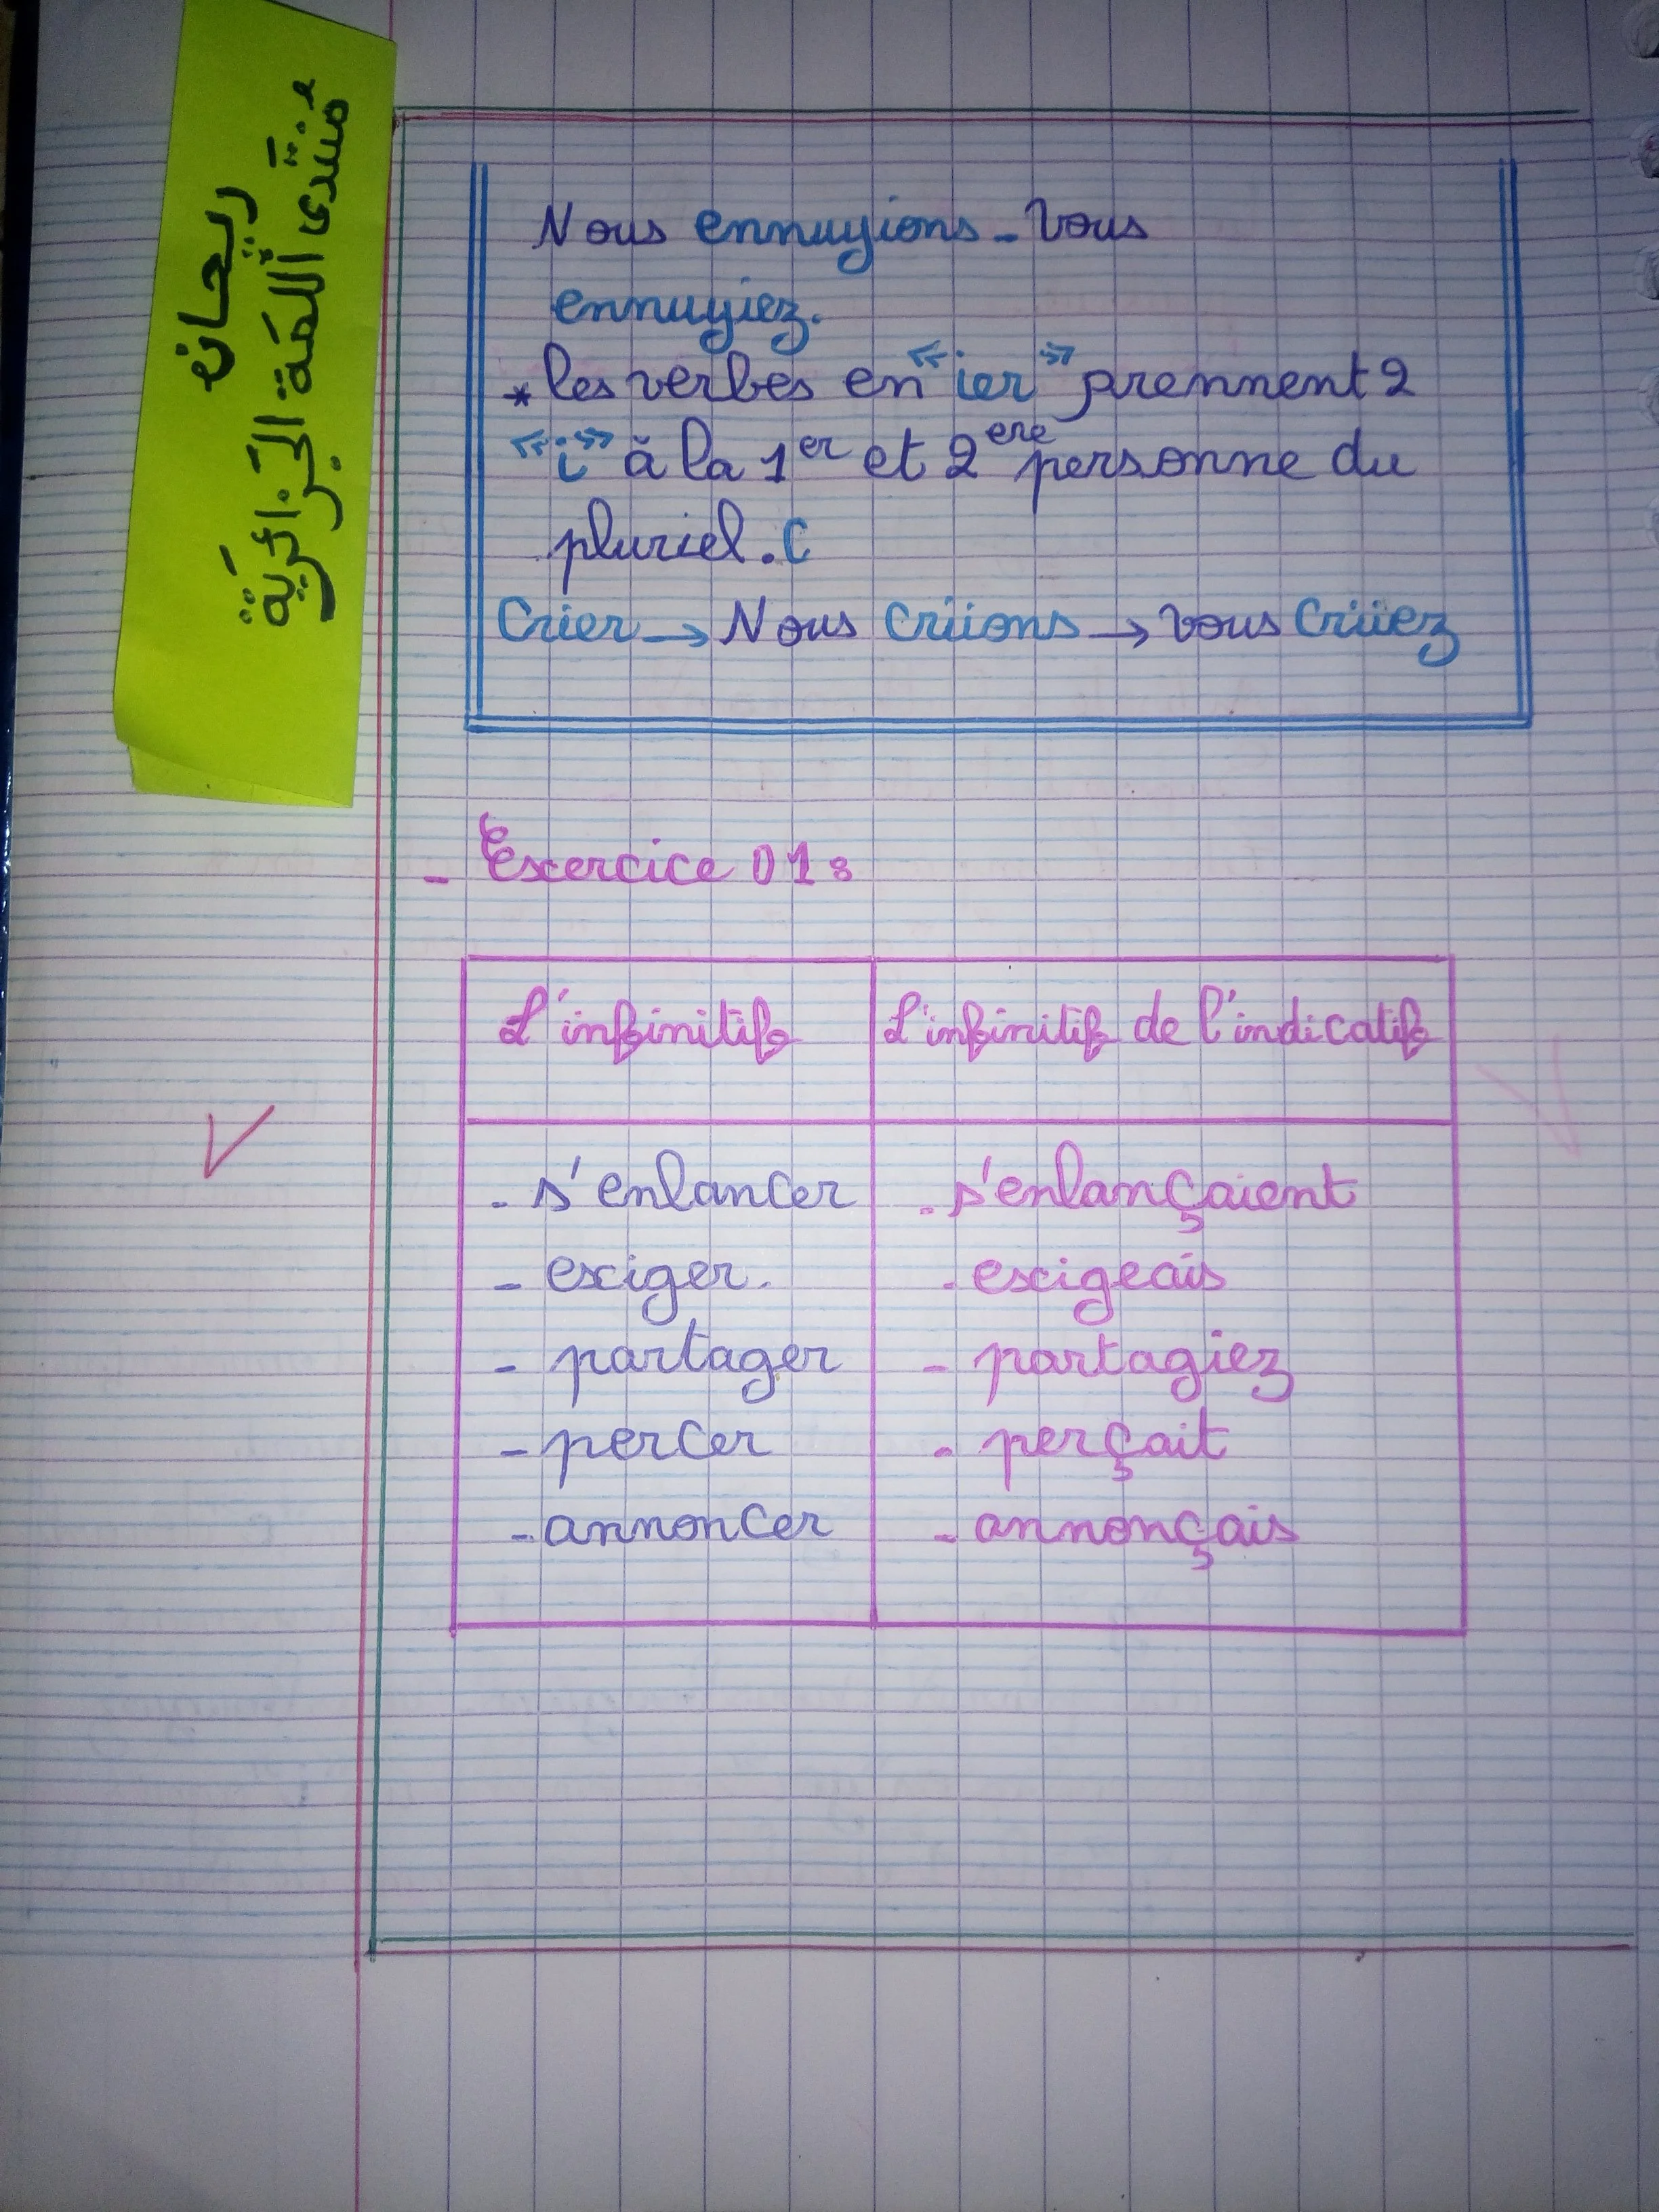 ريحان
منتدى اللمة الجزائرية
Nous ennuyions - Vous
ennuyiez.
* les verbes en « ier » prennent 2
« i » à la 1er et 2ere personne du
pluriel. C
Crier → Nous Criions → vous Criiez
- Exercice 01 :
L'infinitif L'infinitif de l'indicatif
- s'enlancer - s'enlançaient
- exiger. - exigeais
- partager - partagiez
- percer - perçait
- annoncer - annonçais